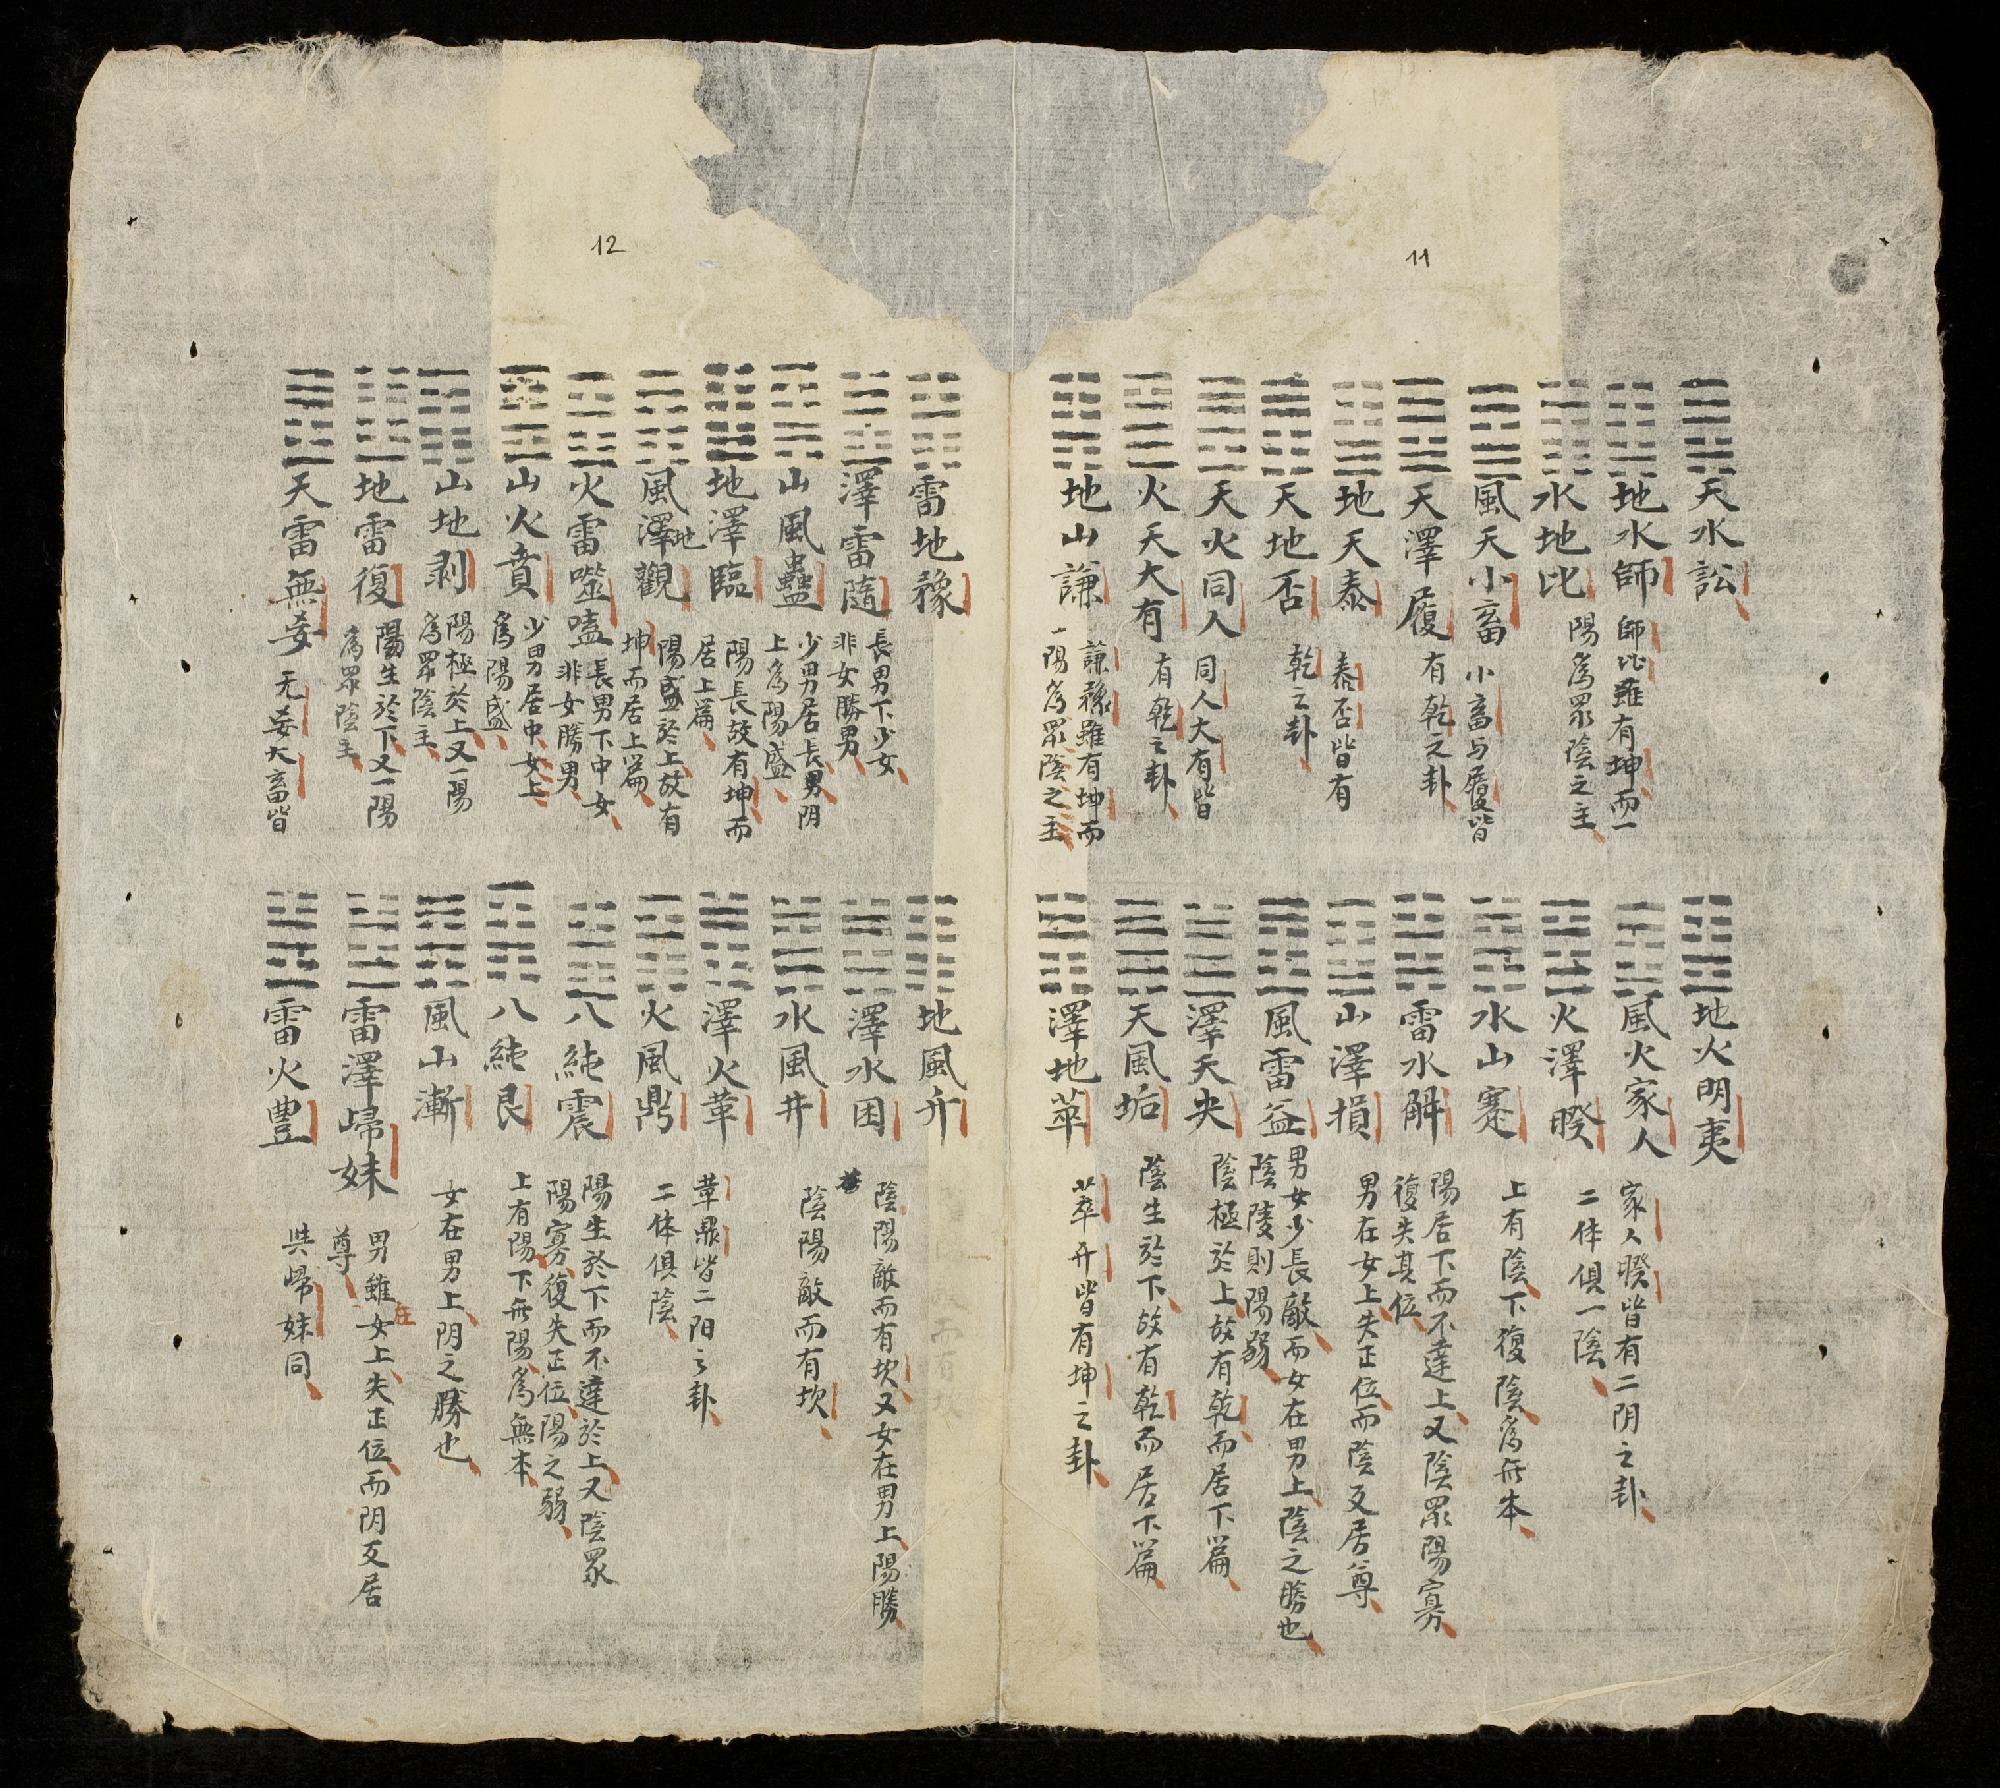 11
天水訟
地水師 師比雖有坤而一
水地比 陽為眾陰之主
風天小畜 小畜与履皆
天澤履 有乾之卦
地天泰 泰否皆有
天地否 乾之卦
天火同人 同人大有皆
火天大有 有乾之卦
地山謙 謙豫雖有坤而
一陽為眾陰之主
地火明夷
風火家人 家人睽皆有二阴之卦
火澤睽 二体俱一陰
水山蹇 上有陰下復陰為無本
雷水解 陽居下而不達上又陰眾陽寡
復失其位
山澤損 男在女上失正位而陰反居尊
風雷益 男女少長敵而女在男上陰之勝也
陰陵則陽弱
澤天夬 陰極於上故有乾而居下篇
天風垢 陰生於下故有乾而居下篇
澤地萃 萃升皆有坤之卦
12
雷地豫
澤雷隨 長男下少女
非女勝男
山風蠱 少男居長男阴
上為陽盛
地澤臨 陽長故有坤而
居上篇
風澤地觀 陽盛於上故有
坤而居上篇
火雷噬嗑 長男下中女
非女勝男
山火賁 少男居中女上
為陽盛
山地剥 陽極於上又一陽
為眾陰主
地雷復 陽生於下又一陽
為眾陰主
天雷無妄 无妄大畜皆
地風升
澤水困 陰陽敵而有坎又女在男上陽勝
水風井 陰陽敵而有坎
澤火革 革鼎皆二阳之卦
火風鼎 二体俱陰
八純震 陽生於下而不達於上又陰眾
陽寡復失正位陽之弱
八純艮 上有陽下無陽為無本
風山漸 女在男上阴之勝也
雷澤歸妹 男雖在女上失正位而阴反居
尊
雷火豊 与歸妹同